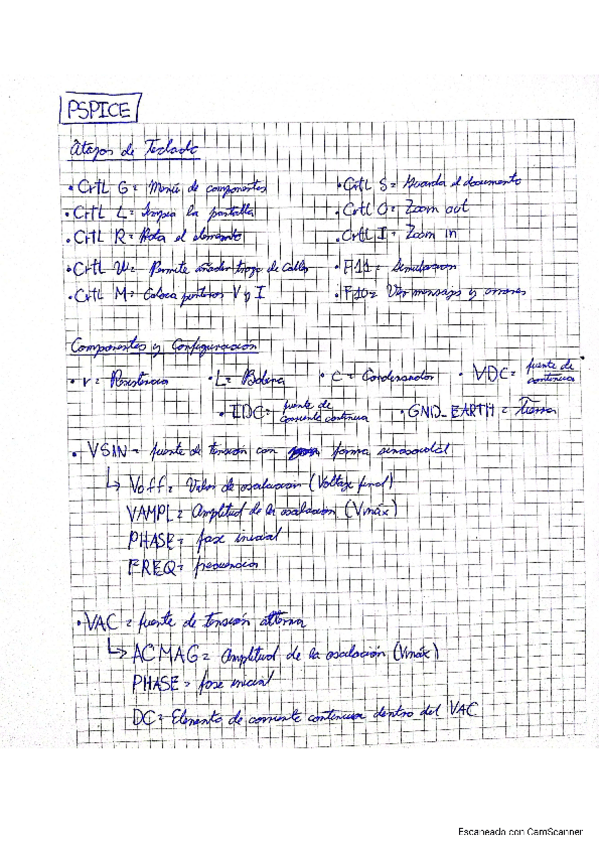 PSPICE
Atajos de Teclado
• CrtL G = Menú de componentes
• CrtL S = Guarda el documento
• CrtL L = Limpia la pantalla
• CrtL O = Zoom out
• CrtL R = Rota el elemento
• CrtL I = Zoom in
• CrtL W = Permite añadir trozo de cables
• F11 = Simulacion
• CrtL M = Coloca punteros V y I
• F10 = Ver mensajes y errores
Componentes y Configuración
• r = Resistencia • L = Bobina • C = Condensador • VDC = fuente de continua
• IDC = fuente de corriente continua • GND_EARTH = Tierra
• VSIN = fuente de tensión con forma sinosoidal
↳ Voff = Valor de oscilación (Voltaje final)
VAMPL = Amplitud de la oscilacion (Vmáx)
PHASE = fase inicial
FREQ = frecuencia
• VAC = fuente de tensión alterna
↳ ACMAG = Amplitud de la oscilación (Vmáx)
PHASE = fase inicial
DC = Elemento de corriente continua dentro del VAC
Escaneado con CamScanner